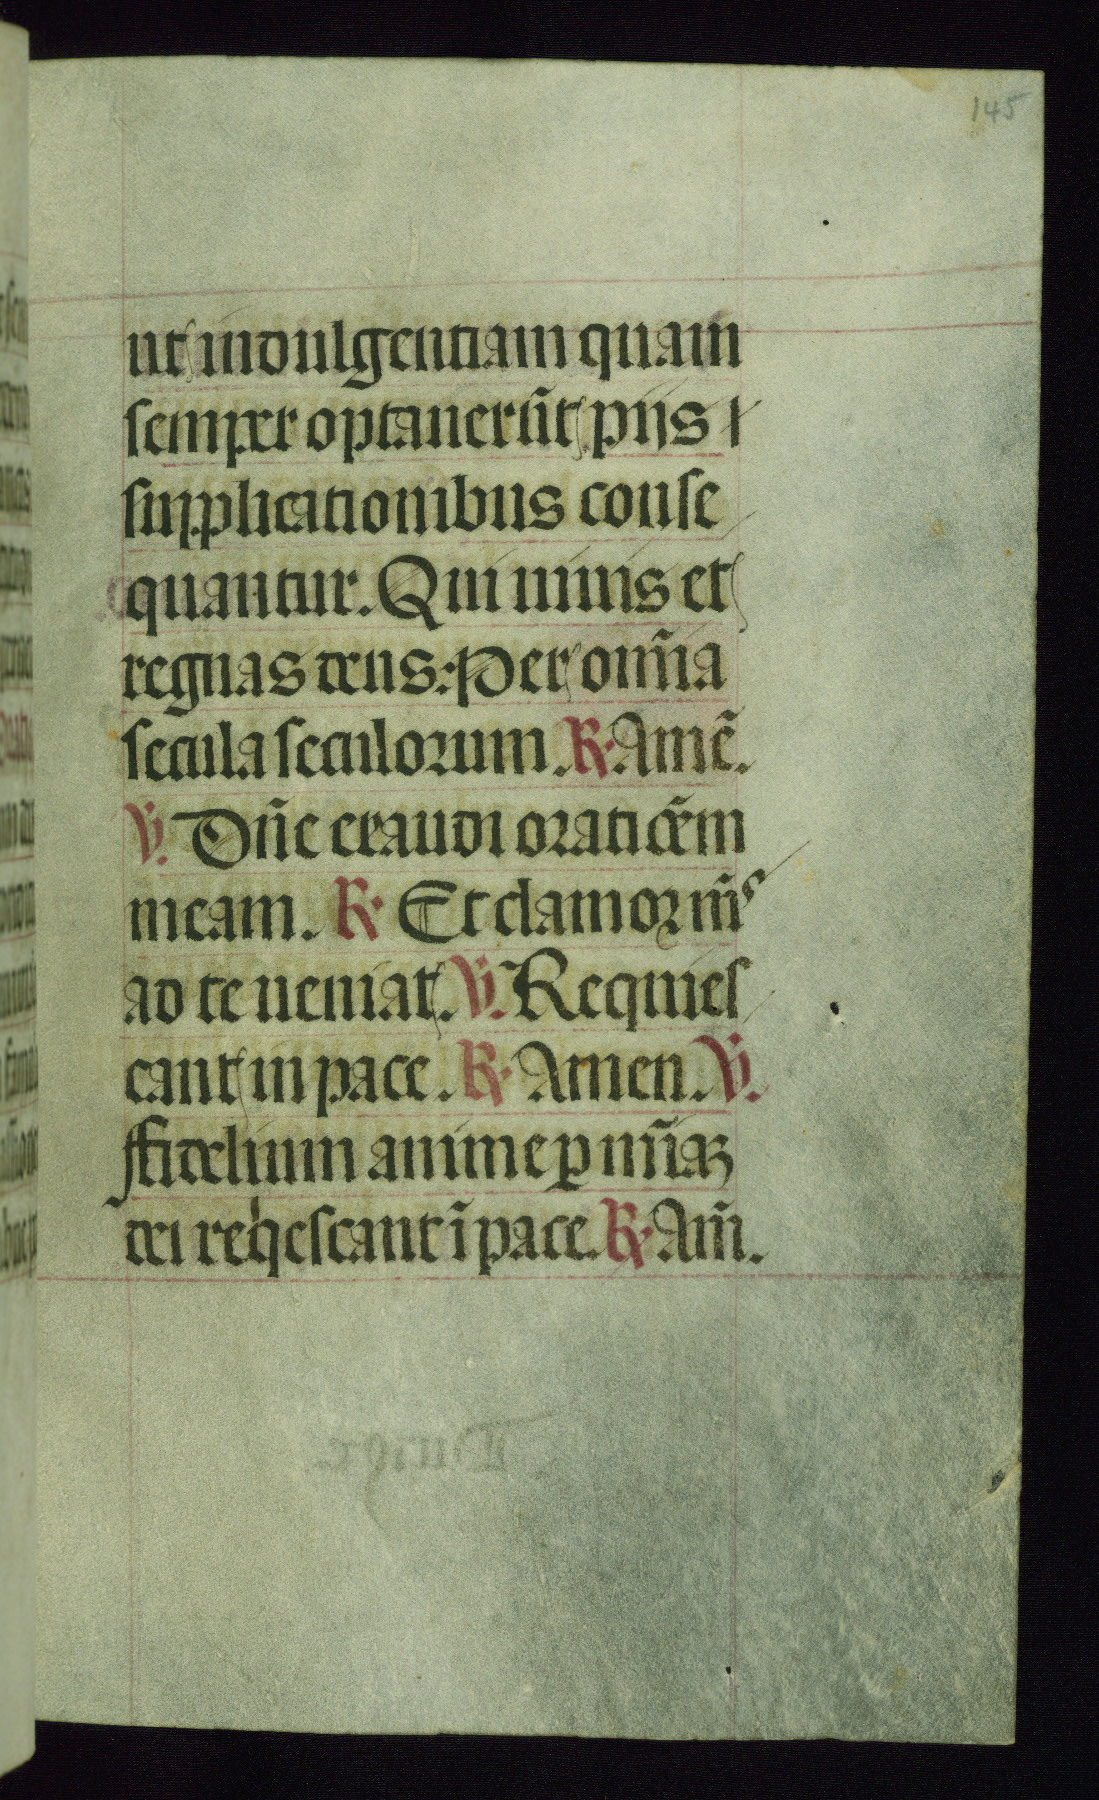 145
ut indulgentiam quam
semper optauerūt piis
supplicationibus conse
quantur. Qui uiuis et
regnas deus: Per om̄ia
secula seculorum. ℟. Amē.
℣. Dn̄e exaudi oratiōem
meam. ℟. Et clamor mꝰ
ad te ueniat. ℣. Requies
cant in pace. ℟. Amen. ℣.
ffidelium anime ꝑ mīaꝫ
dei reqͥescant ī pace. ℟. Am̄.